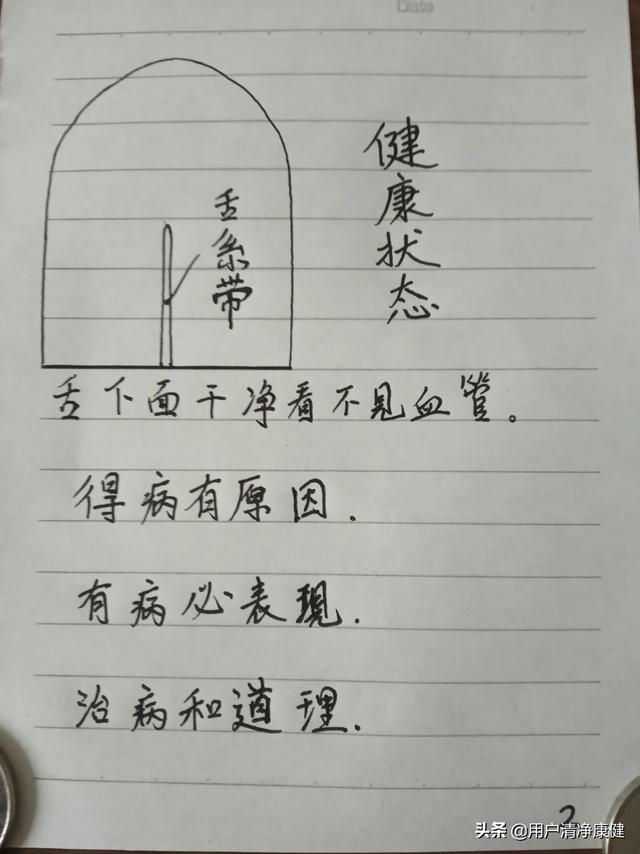 Date
健康状态
舌系带
舌下面干净看不见血管。
得病有原因.
有病必表现.
治病和道理.
2
头条 @用户清净康健